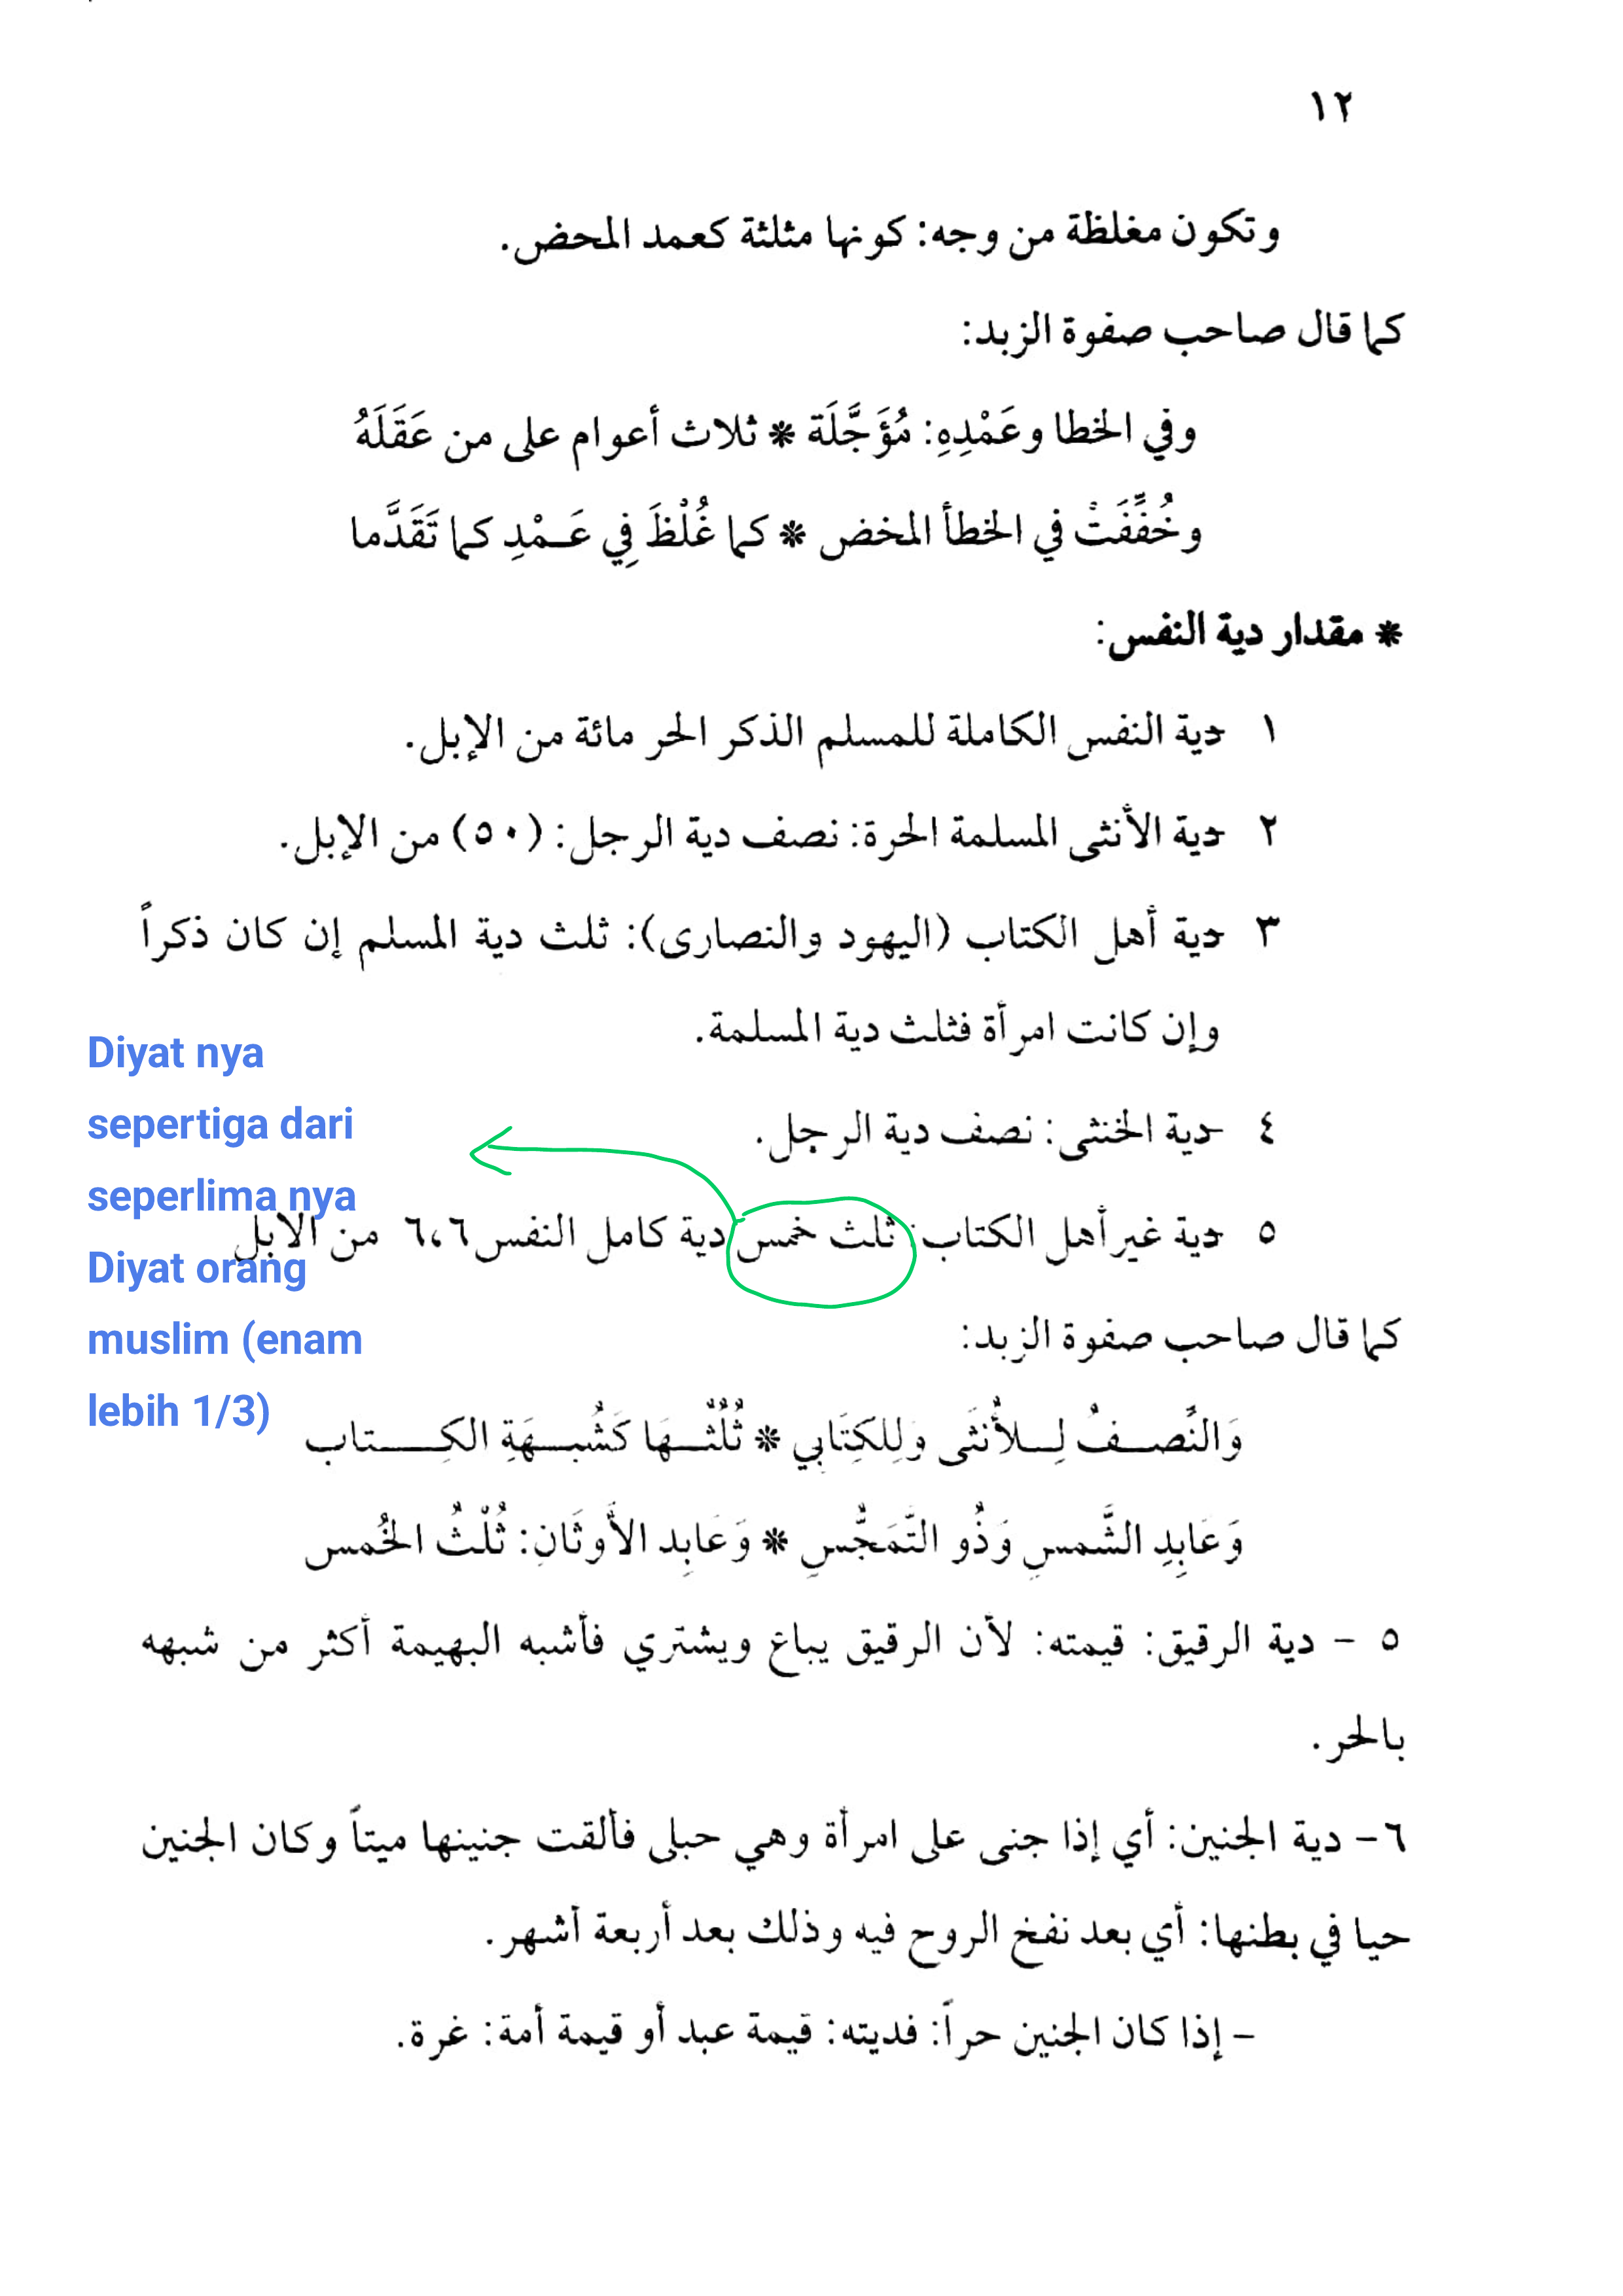 ١٢
وتكون مغلظة من وجه: كونها مثلثة كعمد المحض.
كما قال صاحب صفوة الزبد:
وفي الخطا وعَمْدِهِ: مُؤَجَّلَة * ثلاث أعوام على من عَقَلَهُ
وخُفِّفَتْ في الخطأ المخض * كما غُلْظَ فِي عَـمْدِ كما تَقَدَّما
* مقدار دية النفس:
١ دية النفس الكاملة للمسلم الذكر الحر مائة من الإبل.
٢ دية الأنثى المسلمة الحرة: نصف دية الرجل: (٥٠) من الإبل.
٣ دية أهل الكتاب (اليهود والنصارى): ثلث دية المسلم إن كان ذكراً
وإن كانت امرأة فثلث دية المسلمة.
٤ دية الخنثى: نصف دية الرجل.
٥ دية غير أهل الكتاب: ثلث خمس دية كامل النفس ٦،٦ من الابل
Diyat nya
sepertiga dari
seperlima nya
Diyat orang
muslim (enam
lebih 1/3)
كما قال صاحب صفوة الزبد:
وَالنَّصـفُ لِـلأُنثَى وَلِلكِتَابي * ثُلُثُـهَا كَشُبـهَةِ الكِــتاب
وَعَابِدِ الشَّمسِ وَذُو التَّمَجُّسِ * وَعَابِد الأَوثَانِ: ثُلْثُ الخُمس
٥ - دية الرقيق: قيمته: لأن الرقيق يباع ويشتري فأشبه البهيمة أكثر من شبهه
بالحر.
٦- دية الجنين: أي إذا جنى على امرأة وهي حبلى فألقت جنينها ميتاً وكان الجنين
حيا في بطنها: أي بعد نفخ الروح فيه وذلك بعد أربعة أشهر.
- إذا كان الجنين حراً: فديته: قيمة عبد أو قيمة أمة: غرة.